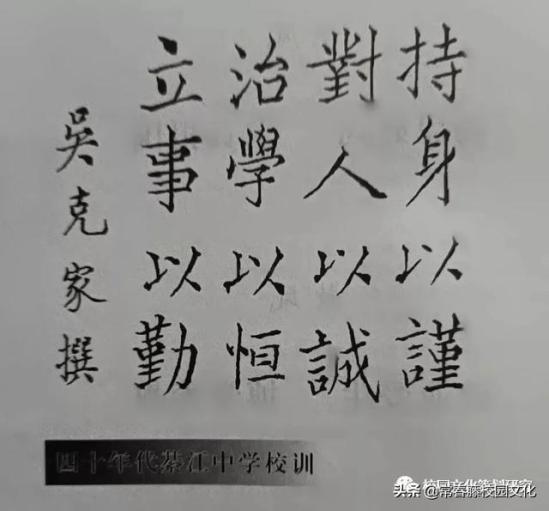 持身以謹
對人以誠
治學以恒
立事以勤
吳克家撰
四十年代綦江中学校训
校园文化策划研究
头条@常春藤校园文化